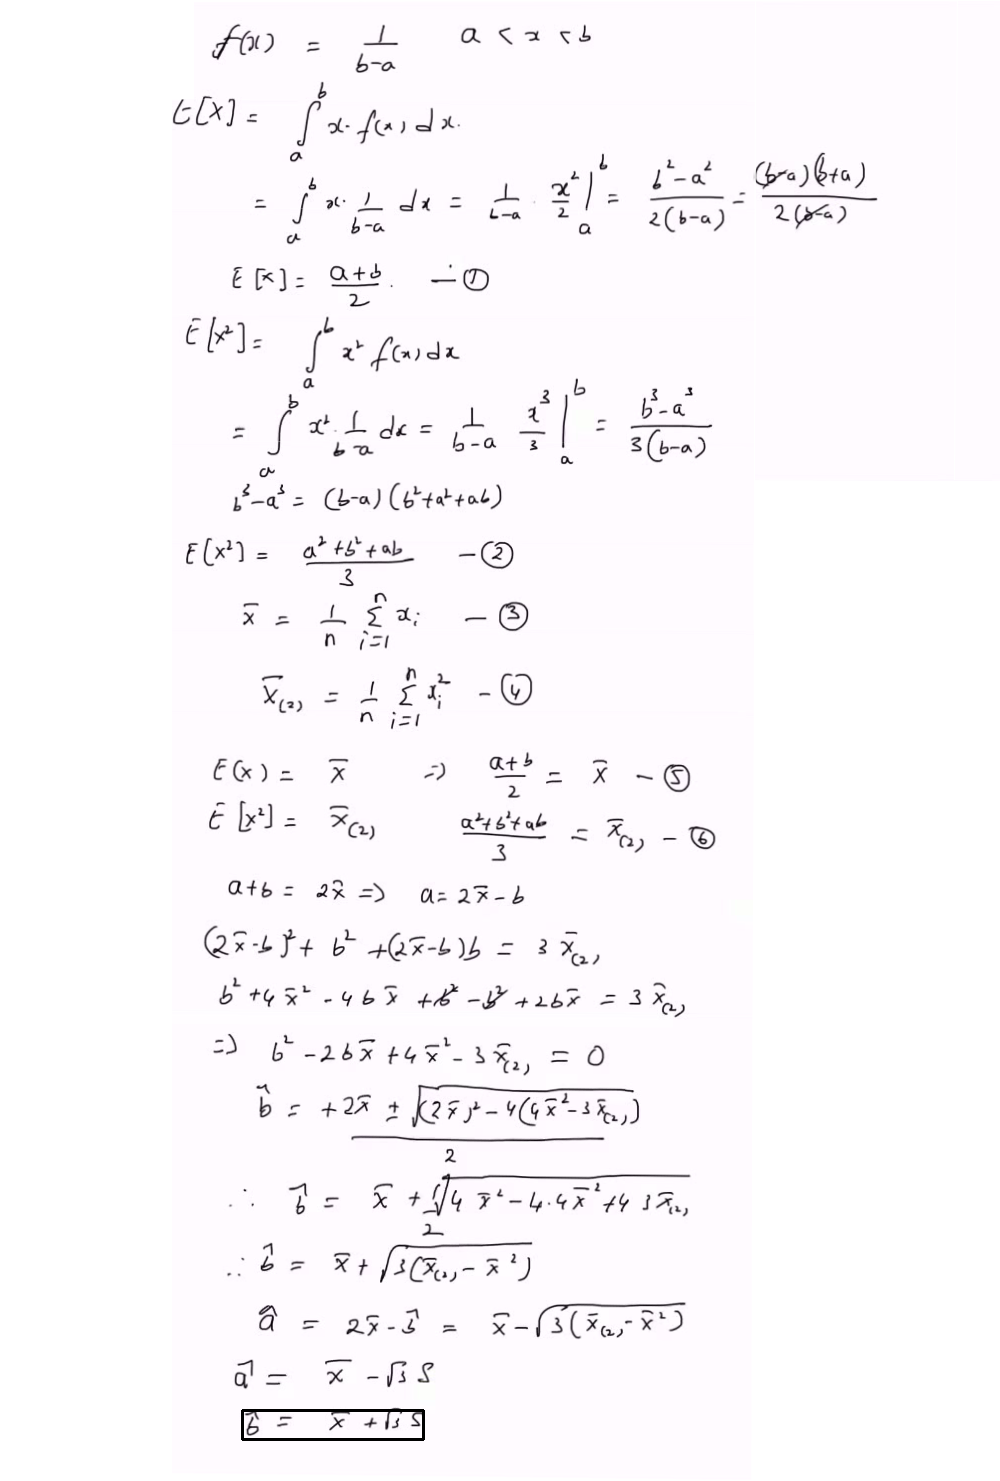 f(x) = 1/(b-a) a < x < b
E[X] = ∫_a^b x· f(x) dx.
= ∫_a^b x· 1/(b-a) dx = 1/(b-a) · x²/2 |_a^b = (b²-a²)/(2(b-a)) = ((b-a)(b+a))/(2(b-a))
E[x] = (a+b)/2 . — ①
E[x²] = ∫_a^b x² f(x) dx
= ∫_a^b x² · 1/(b-a) dx = 1/(b-a) x³/3 |_a^b = (b³-a³)/(3(b-a))
b³-a³ = (b-a)(b²+a²+ab)
E[x²] = (a²+b²+ab)/3 - ②
x̄ = 1/n Σ_{i=1}^n x_i - ③
x̄_(2) = 1/n Σ_{i=1}^n x_i² - ④
E(x) = x̄ => (a+b)/2 = x̄ - ⑤
E[x²] = x̄_(2) (a²+b²+ab)/3 = x̄_(2) - ⑥
a+b = 2x̄ => a = 2x̄-b
(2x̄-b)² + b² + (2x̄-b)b = 3 x̄_(2)
b² + 4x̄² - 4bx̄ + b² - b² + 2bx̄ = 3 x̄_(2)
=> b² - 2bx̄ + 4x̄² - 3x̄_(2) = 0
b̂ = (+2x̄ ± √((2x̄)² - 4(4x̄² - 3x̄_(2))))/2
∴ b̂ = x̄ + √(4x̄² - 4·4x̄² + 4 3x̄_(2))/2
∴ b̂ = x̄ + √(3(x̄_(2) - x̄²))
â = 2x̄ - b̂ = x̄ - √(3(x̄_(2) - x̄²))
â = x̄ - √3 S
b̂ = x̄ + √3 S